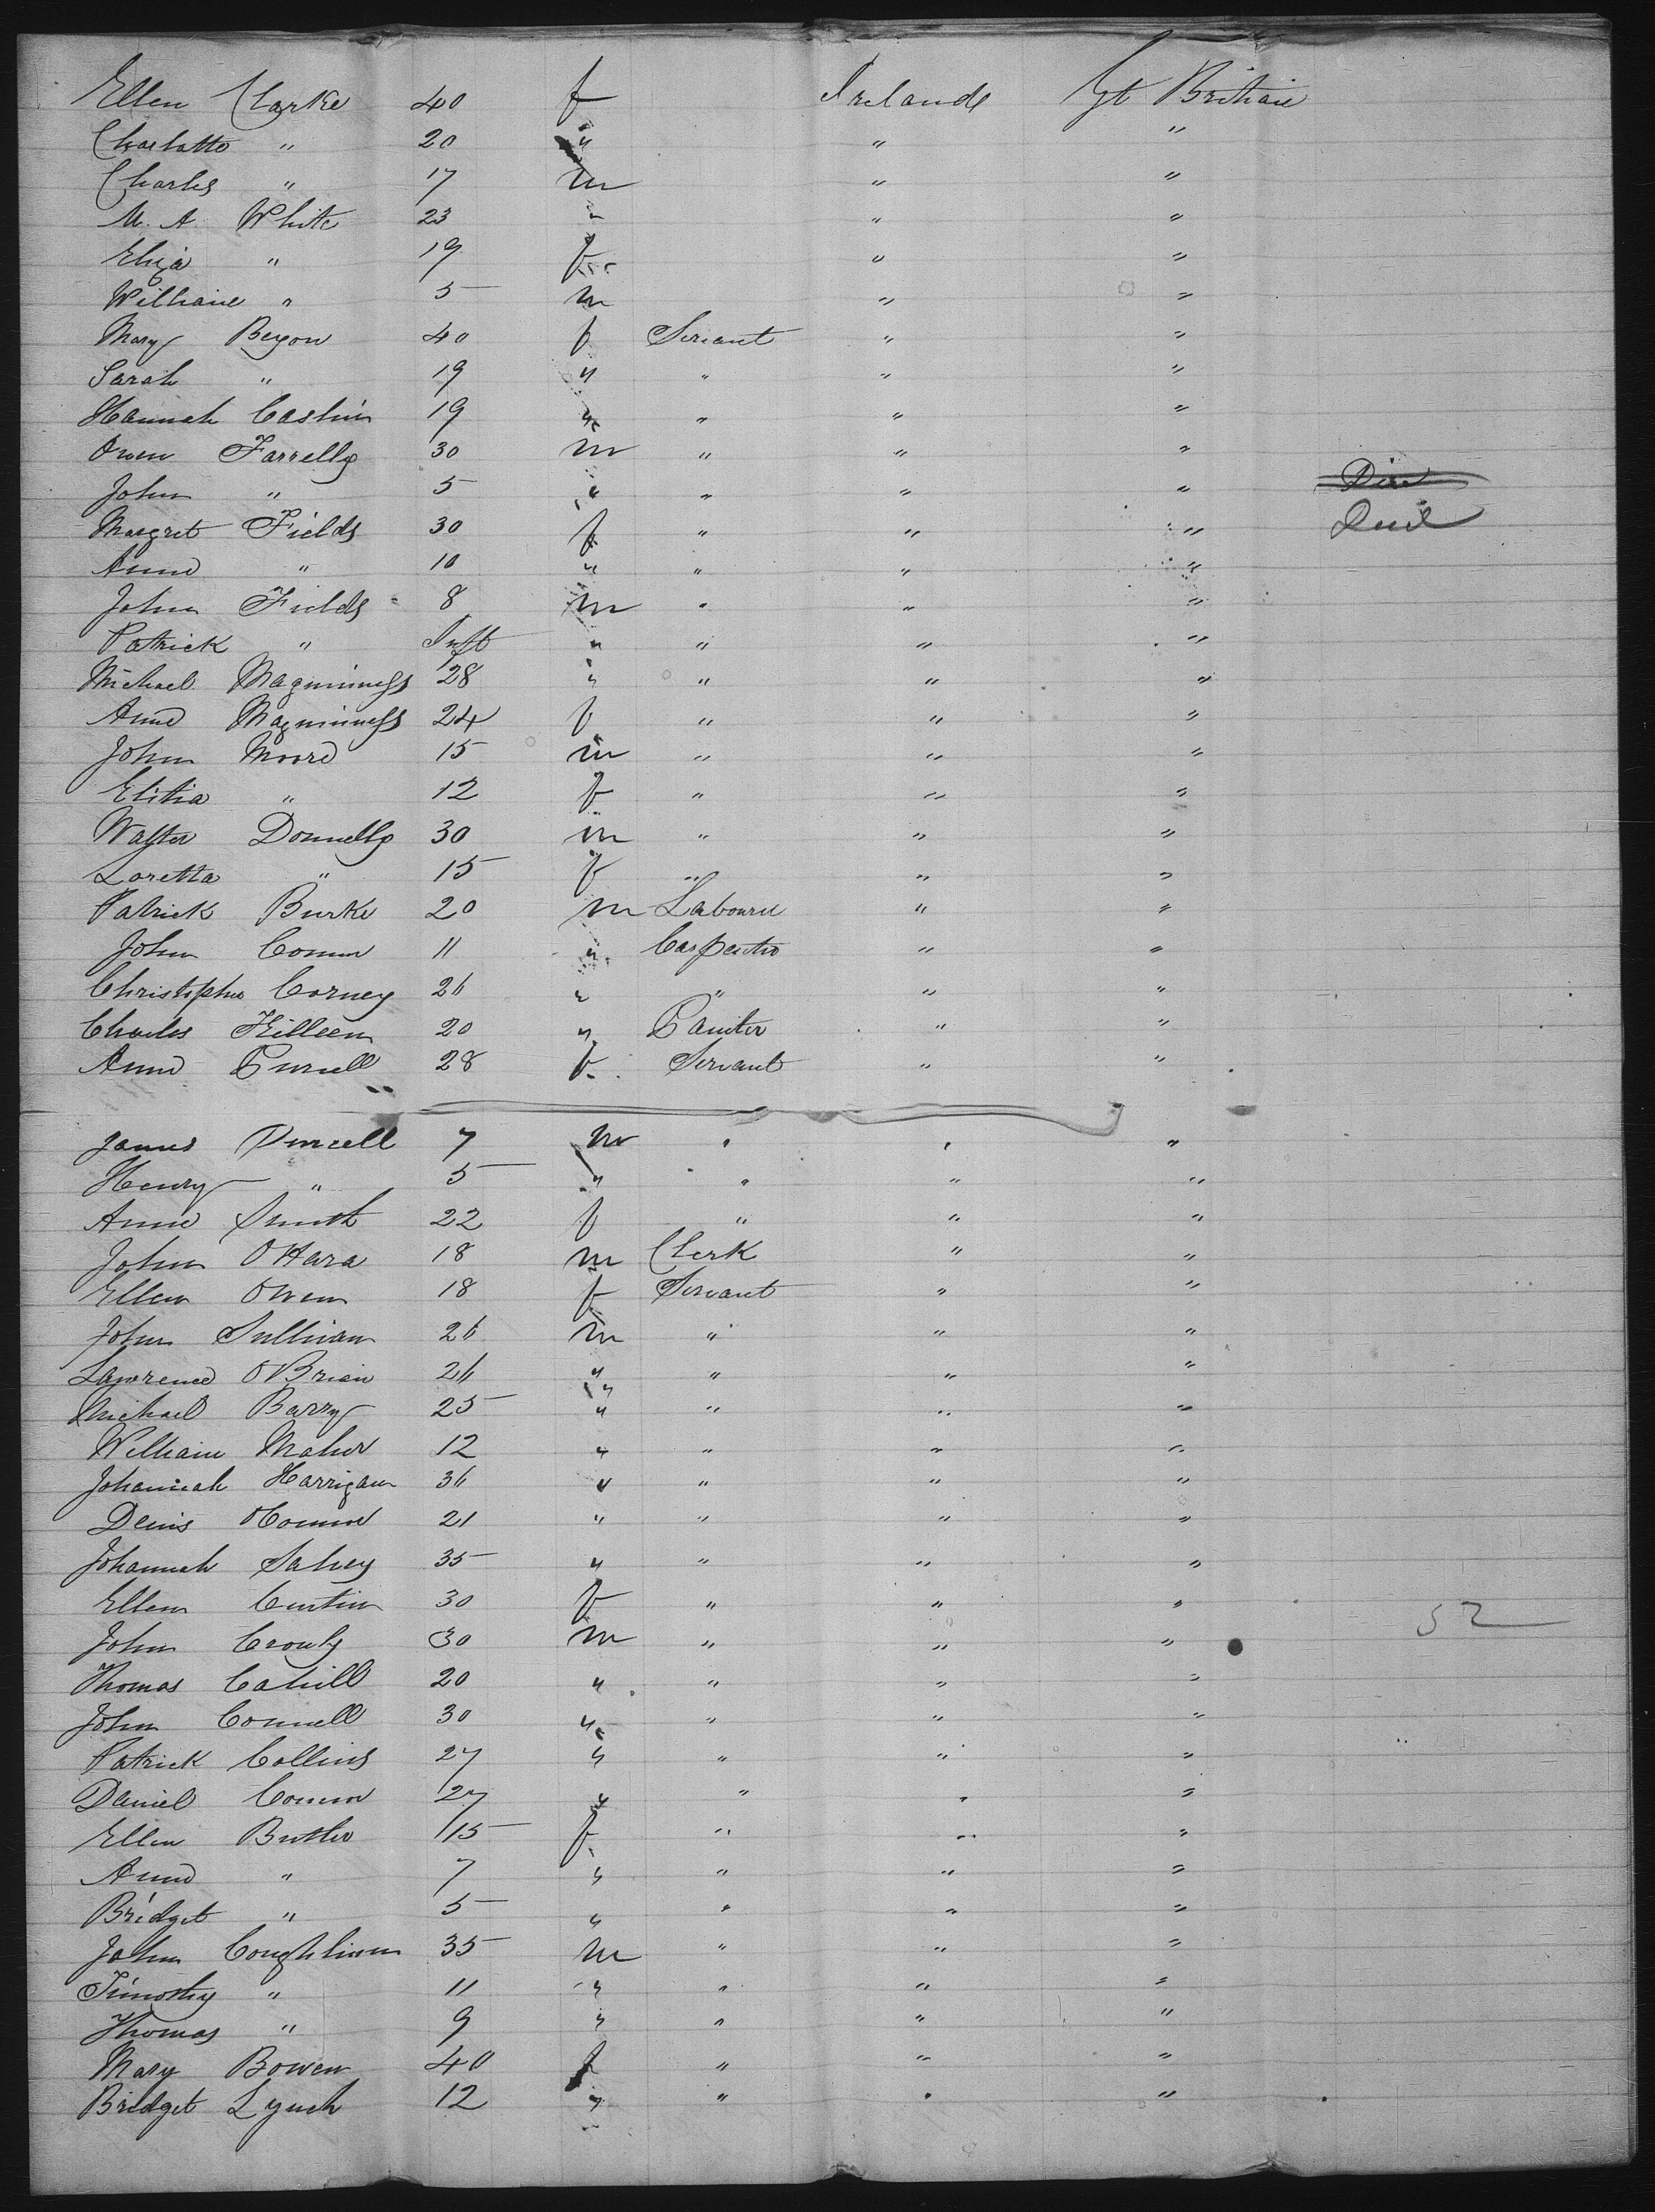 Ellen Clarke 40 f Ireland Gt Britain
Charlotte " 20 " " "
Charles " 17 m " "
M. A. White 23 " " "
Eliza " 19 f " "
William " 5 m " "
Mary Beyon 40 f Servant " "
Sarah " 19 " " " "
Hannah Cashin 19 " " " "
Owen Farrelly 30 m " " "
John " 5 " " " "
Margret Fields 30 f " " " Died
Anne " 10 " " " "
John Fields 8 m " " "
Patrick " Inft " " " "
Michael Magninness 28 " " " "
Anne Magninness 24 f " " "
John Moore 15 m " " "
Elitia " 12 f " " "
Walter Donnelly 30 m " " "
Loretta " 15 f " " "
Patrick Burke 20 m Labourer " "
John Connor 11 " Carpenter " "
Christopher Corney 26 " " " "
Charles Killeen 20 " Painter " "
Anne Purcell 28 f Servant " "
James Purcell 7 m " " "
Henry " 5 " " " "
Anne Smith 22 f " " "
John OHara 18 m Clerk " "
Ellen Owen 18 f Servant " "
John Sullivan 26 m " " "
Lawrence OBrien 26 " " " "
Michael Barry 25 " " " "
William Maher 12 " " " "
Johannah Harrigan 36 " " " "
Denis OConnor 21 " " " "
Johannah Sahey 35 " " " "
Ellen Curtin 30 f " " "
John Crowly 30 m " " " 52
Thomas Cahill 20 " " " "
John Connell 30 " " " "
Patrick Collins 27 " " " "
Daniel Connor 27 " " " "
Ellen Butler 15 f " " "
Anne " 7 " " " "
Bridget " 5 " " " "
John Coughlivan 35 m " " "
Timothy " 11 " " " "
Thomas " 9 " " " "
Mary Bowen 40 f " " "
Bridget Lynch 12 " " " "